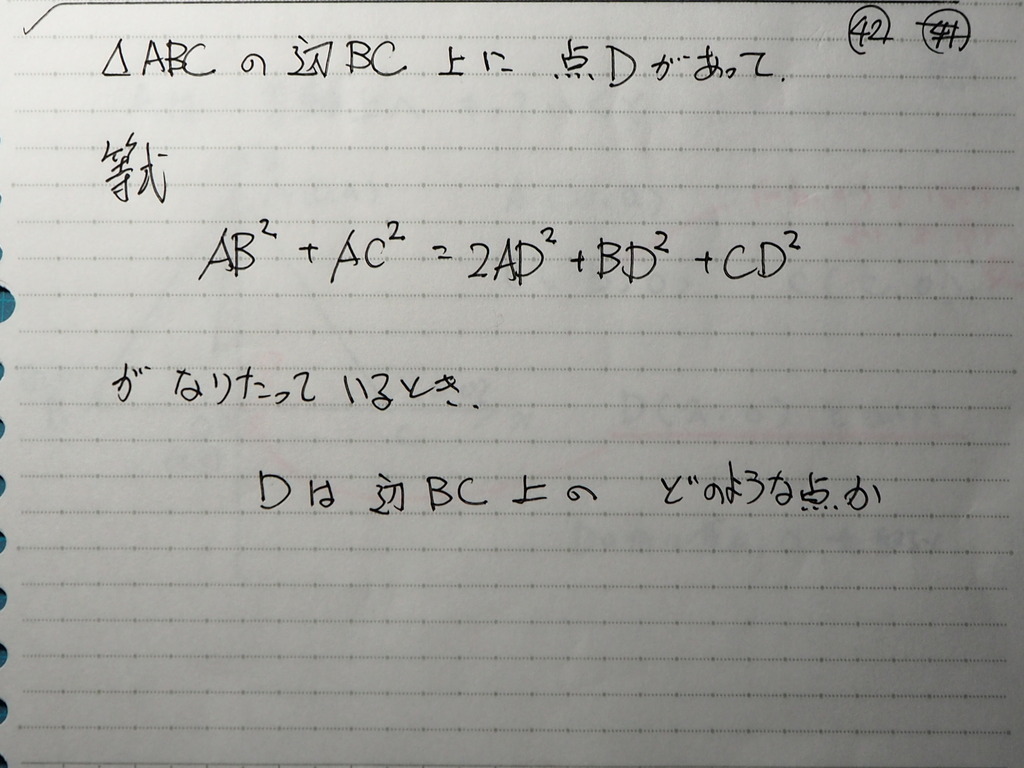 ㊷
△ABC の 辺BC 上に 点Dがあって.
等式
AB² + AC² = 2AD² + BD² + CD²
が なりたって いるとき.
Dは 辺BC 上の どのような点か